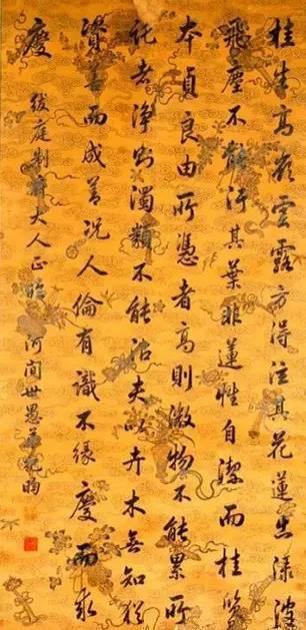 桂生高嶺雲露方得泫其花蓮出淥波
飛塵不能汚其葉非蓮性自潔而桂質
本貞良由所憑者高則微物不能累所
託者淨則濁類不能沾夫以卉木無知猶
資善而成善況人倫有識不緣慶而求
慶
紱庭制府大人正臨 河間世愚弟紀昀